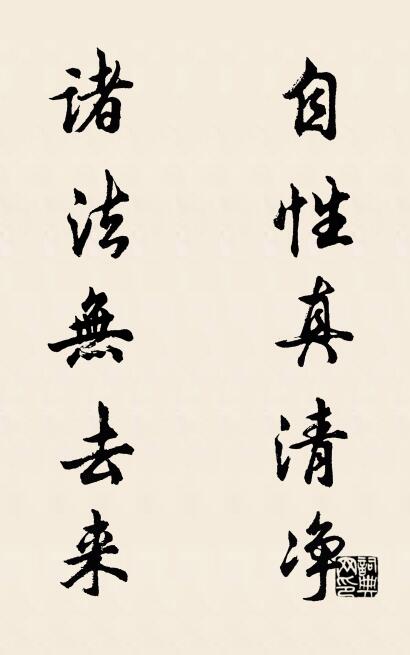 自性真清净
诸法無去来
詞典网印